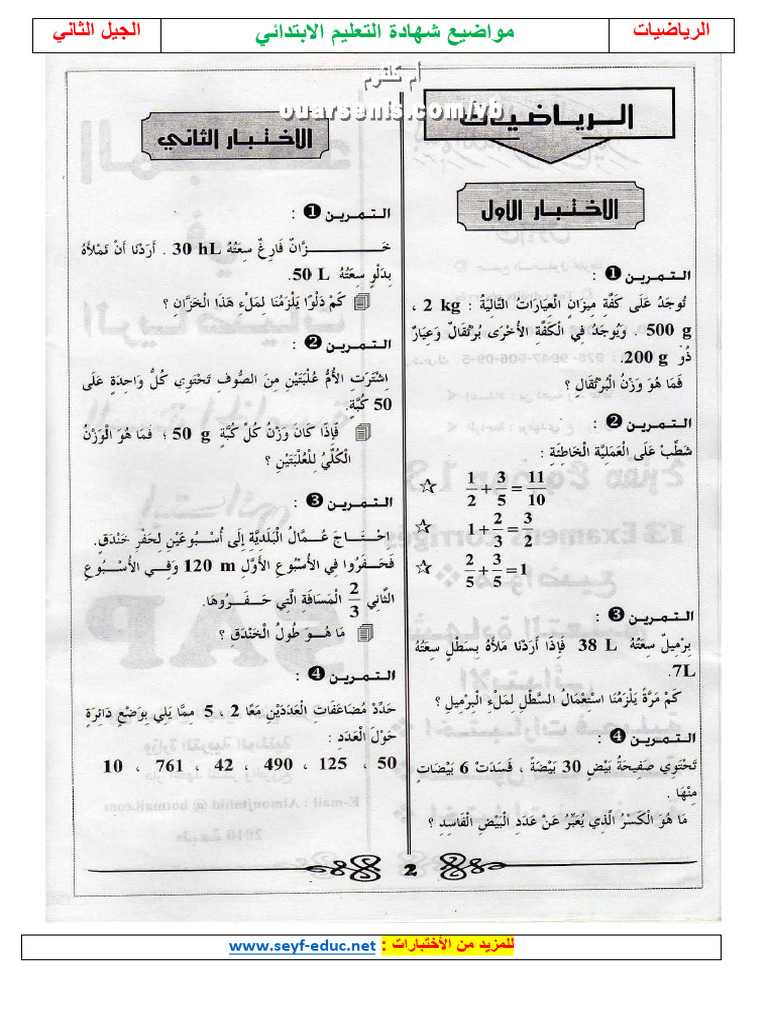 الرياضيات
مواضيع شهادة التعليم الابتدائي
الجيل الثاني
أم كلثوم
ouarsenis.com/vb
الـريـاضيـات
الاختبار الأول
التمرين 1 :
تُوجَدُ عَلَى كَفَّةِ مِيزَانٍ الْعِيَارَاتُ التَّالِيَةُ : 2 kg ،
500 g . وَيُوجَدُ فِي الْكَفَّةِ الأُخْرَى بُرْتُقَالٌ وَعِيَارٌ
ذُو 200 g.
فَمَا هُوَ وَزْنُ الْبُرْتُقَالِ ؟
التمرين 2 :
شَطِّبْ عَلَى الْعَمَلِيَّةِ الْخَاطِئَةِ :
☆ 1/2 + 3/5 = 11/10
☆ 1 + 2/3 = 3/2
☆ 2/5 + 3/5 = 1
التمرين 3 :
بِرْمِيلٌ سِعَتُهُ 38 L فَإِذَا أَرَدْنَا مَلأَهُ بِسَطْلٍ سِعَتُهُ
7L.
كَمْ مَرَّةً يَلْزَمُنَا اسْتِعْمَالُ السَّطْلِ لِمَلْءِ الْبِرْمِيلِ ؟
التمرين 4 :
تَحْتَوِي صَفِيحَةُ بَيْضٍ 30 بَيْضَةً ، فَسَدَتْ 6 بَيْضَاتٍ
مِنْهَا .
مَا هُوَ الْكَسْرُ الَّذِي يُعَبِّرُ عَنْ عَدَدِ الْبَيْضِ الْفَاسِدِ ؟
الاختبار الثاني
التمرين 1 :
خَـزَّانٌ فَارِغٌ سِعَتُهُ 30 hL . أَرَدْنَا أَنْ نَمْلأَهُ
بِدَلْوٍ سِعَتُهُ 50 L.
كَمْ دَلْوًا يَلْزَمُنَا لِمَلْءِ هَذَا الْخَزَّانِ ؟
التمرين 2 :
اِشْتَرَتِ الأُمُّ عُلْبَتَيْنِ مِنَ الصُّوفِ تَحْتَوِي كُلُّ وَاحِدَةٍ عَلَى
50 كُبَّةٍ.
فَإِذَا كَانَ وَزْنُ كُلِّ كُبَّةٍ 50 g ؛ فَمَا هُوَ الْوَزْنُ
الْكُلِّيُّ لِلْعُلْبَتَيْنِ ؟
التمرين 3 :
اِحْتَاجَ عُمَّالُ الْبَلَدِيَّةِ إِلَى أُسْبُوعَيْنِ لِحَفْرِ خَنْدَقٍ.
فَحَفَرُوا فِي الأُسْبُوعِ الأَوَّلِ 120 m وَفِي الأُسْبُوعِ
الثَّانِي 2/3 الْمَسَافَةِ الَّتِي حَفَرُوهَا.
مَا هُوَ طُولُ الْخَنْدَقِ ؟
التمرين 4 :
حَدِّدْ مُضَاعَفَاتِ الْعَدَدَيْنِ مَعًا 2 ، 5 مِمَّا يَلِي بِوَضْعِ دَائِرَةٍ
حَوْلَ الْعَدَدِ :
50 ، 125 ، 490 ، 42 ، 761 ، 10
2
للمزيد من الأختبارات : www.seyf-educ.net